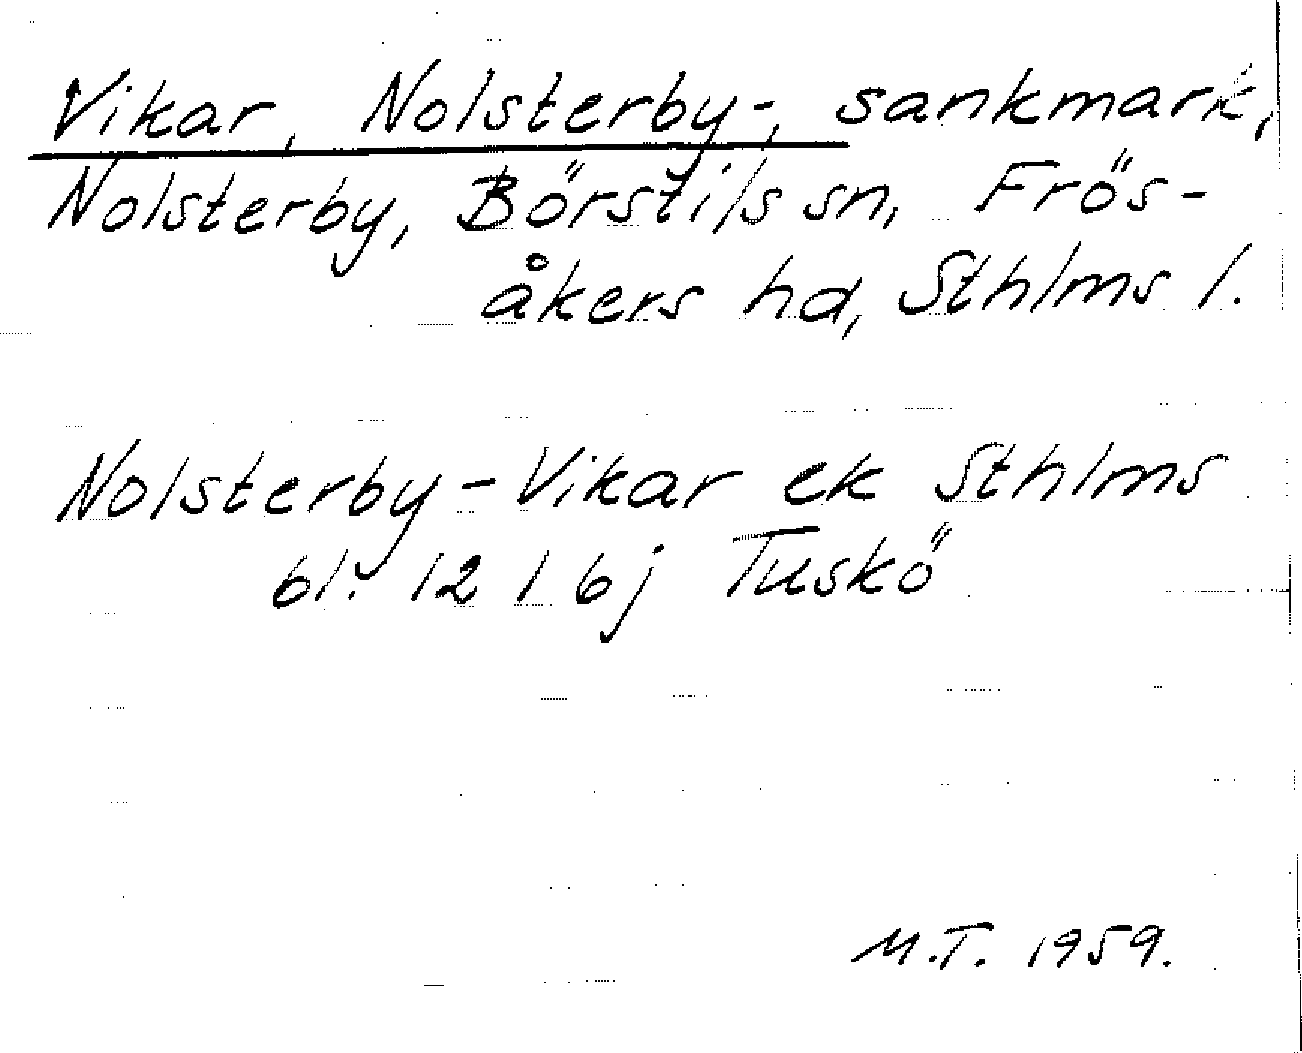 Vikar, Nolsterby-, sankmark,
Nolsterby, Börstils sn, Frös-
åkers hd, Sthlms l.
Nolsterby-Vikar ek Sthlms
bl. 12 I 6j Tuskö
M.T. 1959.